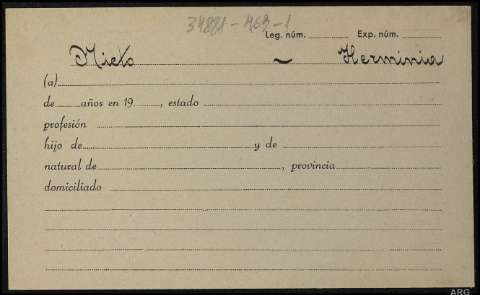 34881-462-1
Leg. núm. Exp. núm.
Nieto ~ Herminia
(a)
de años en 19, estado
profesión
hijo de y de
natural de, provincia
domiciliado
ARG